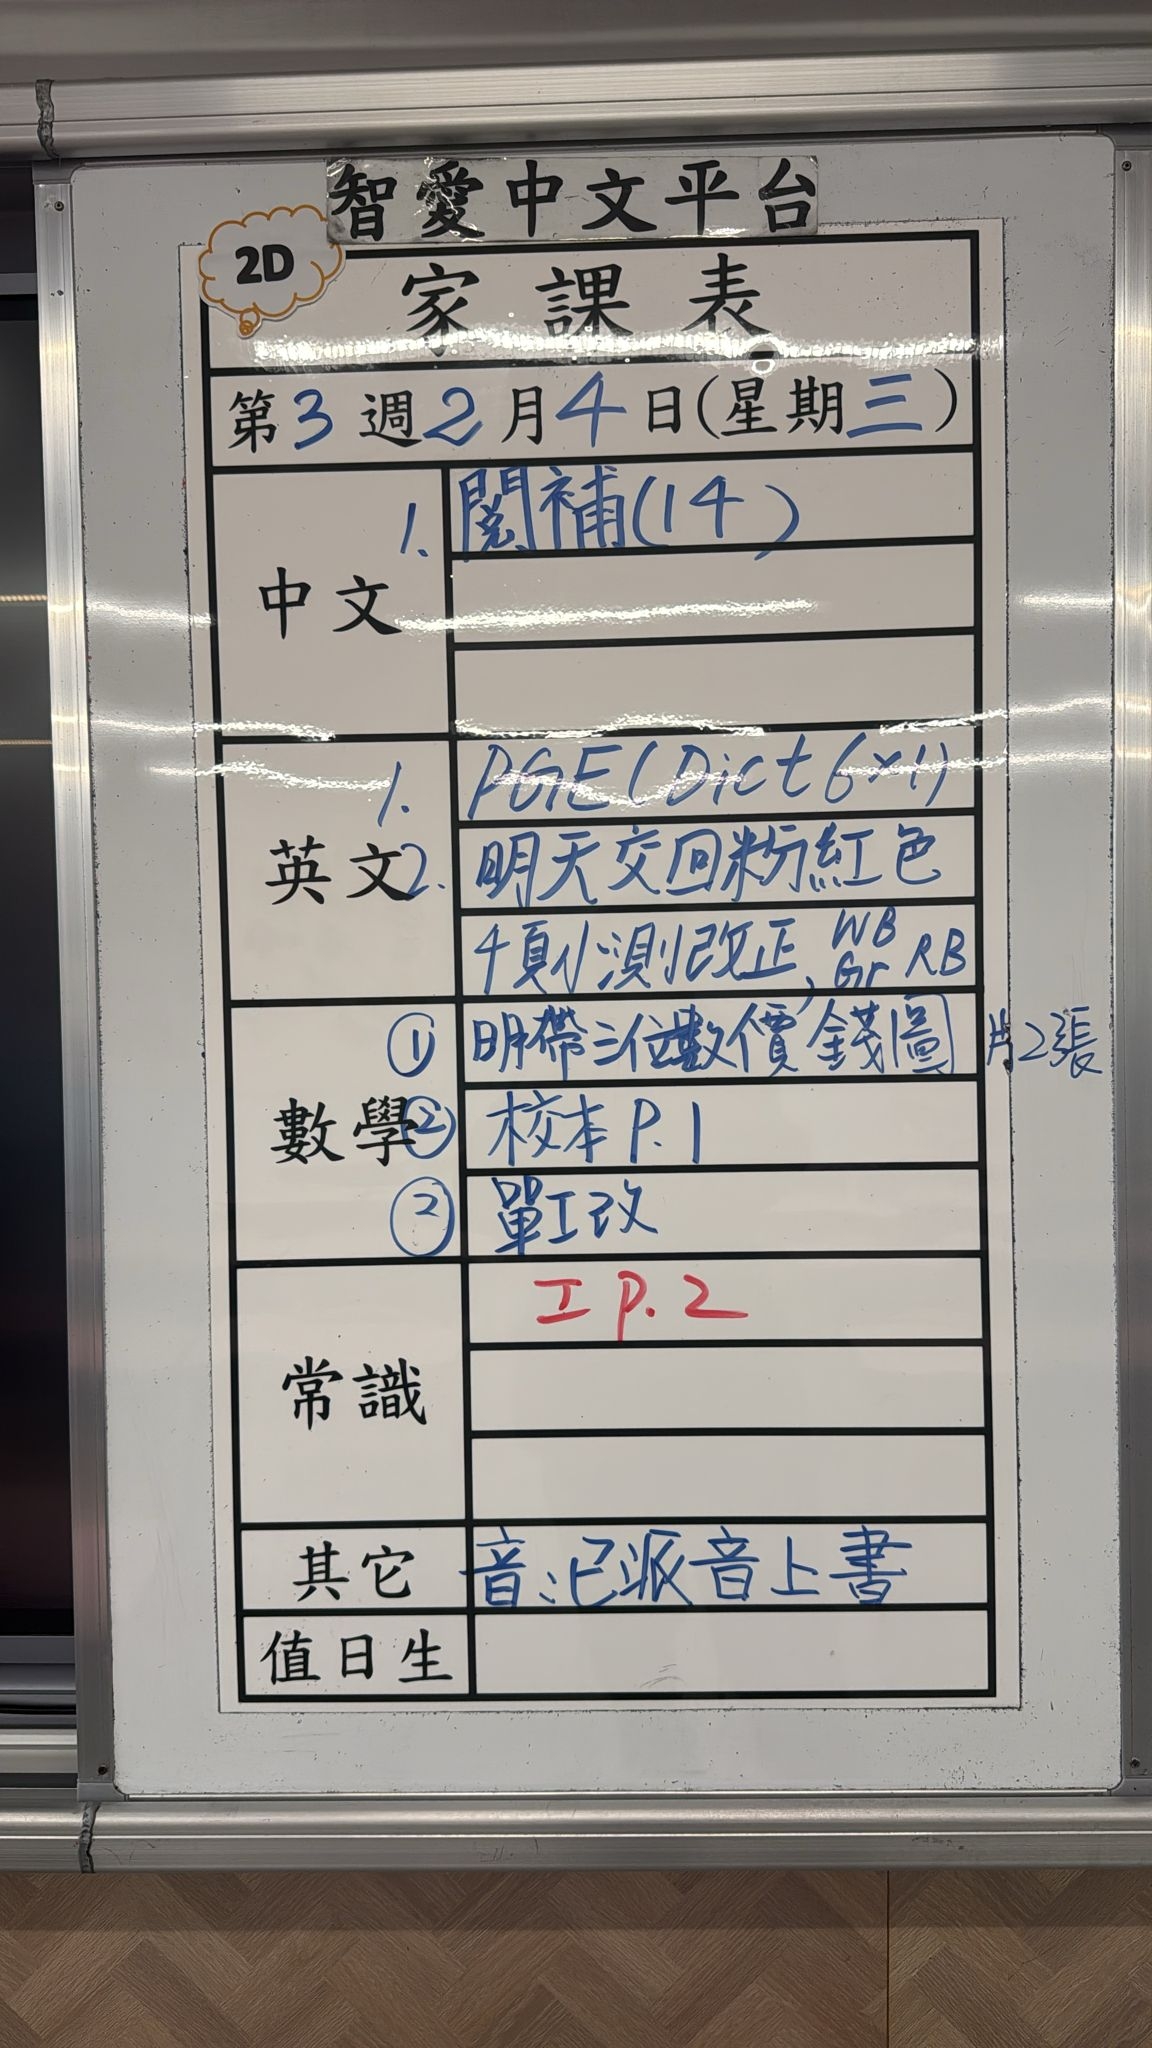 智愛中文平台
2D
家課表
第3週2月4日(星期三)
中文
1. 閱補(14)
英文
1. PGE(Dict 6×1)
2. 明天交回粉紅色
4頁小測改正, WB Gr RB
數學
① 明帶三位數價錢圖片2張
② 校本P.1
② 單工改
常識
工 P.2
其它
音:已派音上書
值日生